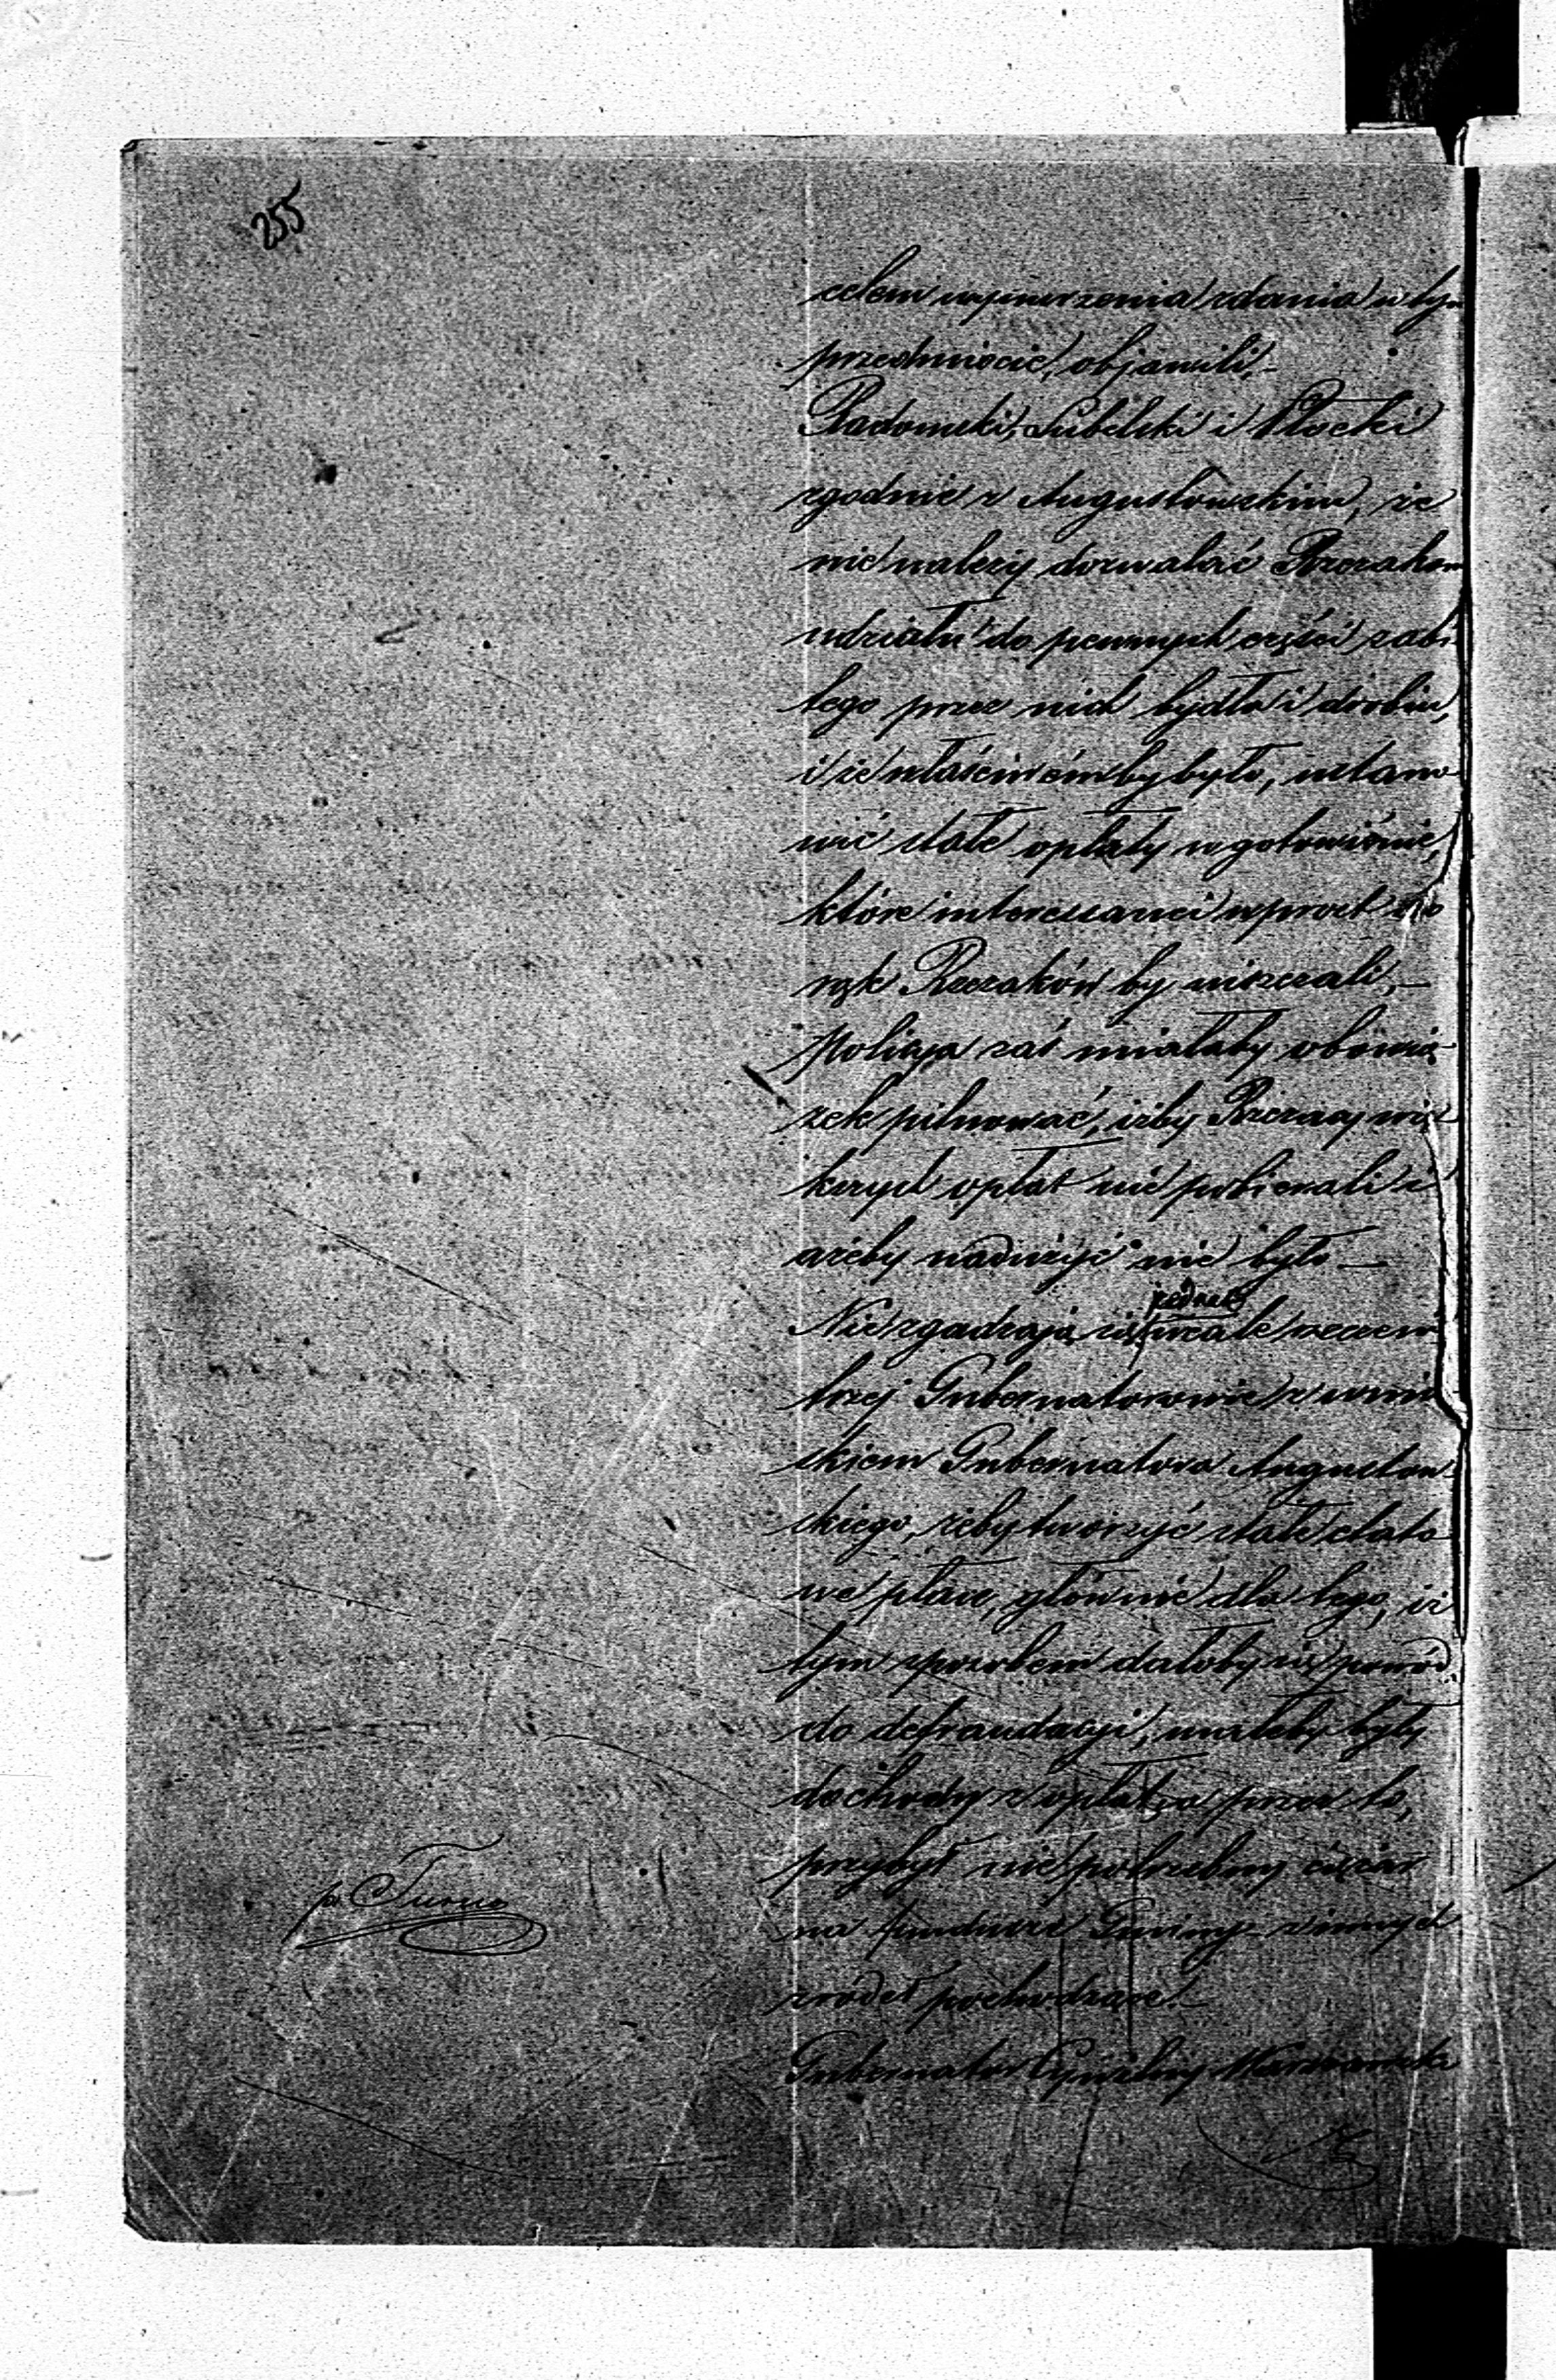 255
celem wynurzenia zdania w tym
przedmiocie, objawili,-
Radomski, Lubelski i Płocki
zgodnie z Augustowskim, że
nie należy dozwalać Rzezakom
udziału do pewnych części zabi
tego przez nich bydła i drobiu,
i że właściwémby było, ustano
wić stałe opłaty w gotowiźnie,
które interessanci wprost do
rąk Rzezaków by uiszczali,-
Policya zaś miałaby obowią-
zek pilnować, iżby Rzezacy wię-
kszych opłat nie pobierali i
ażeby nadużyć nie było -
jednak
Nie zgadzają się wcale rzeczeni
trzej Gubernatorowie z wnio
skiem Gubernatora Augustow-
skiego, żeby tworzyć stałe etato
we płace, głównie dla tego, iż
tym sposobem dałoby się powód
do defraudacyi, uszłyby były
dochody z opłat, a przez to,
przybył niepotrzebny ciężar
na fundusze Gminy z innych
zródeł pochodzące.-
Gubernator Cywilny Warszawski